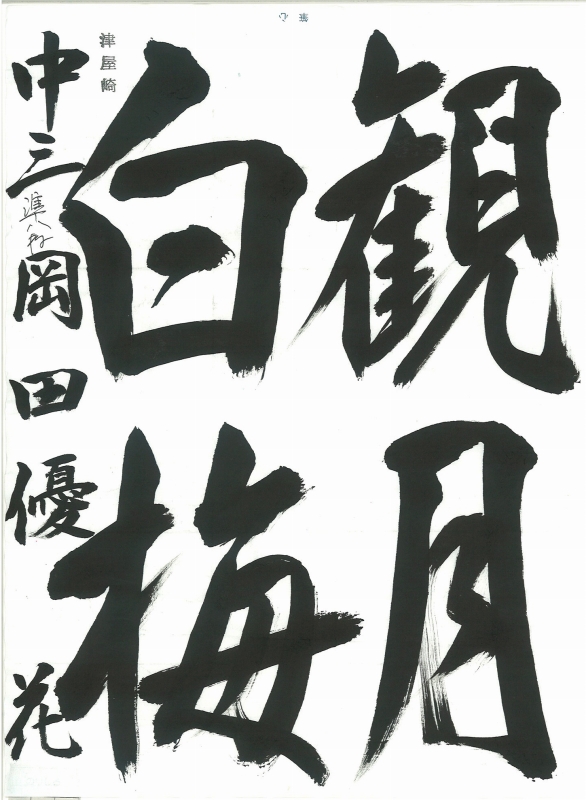 観月
白梅
津屋崎
中三 準八段 岡田優花